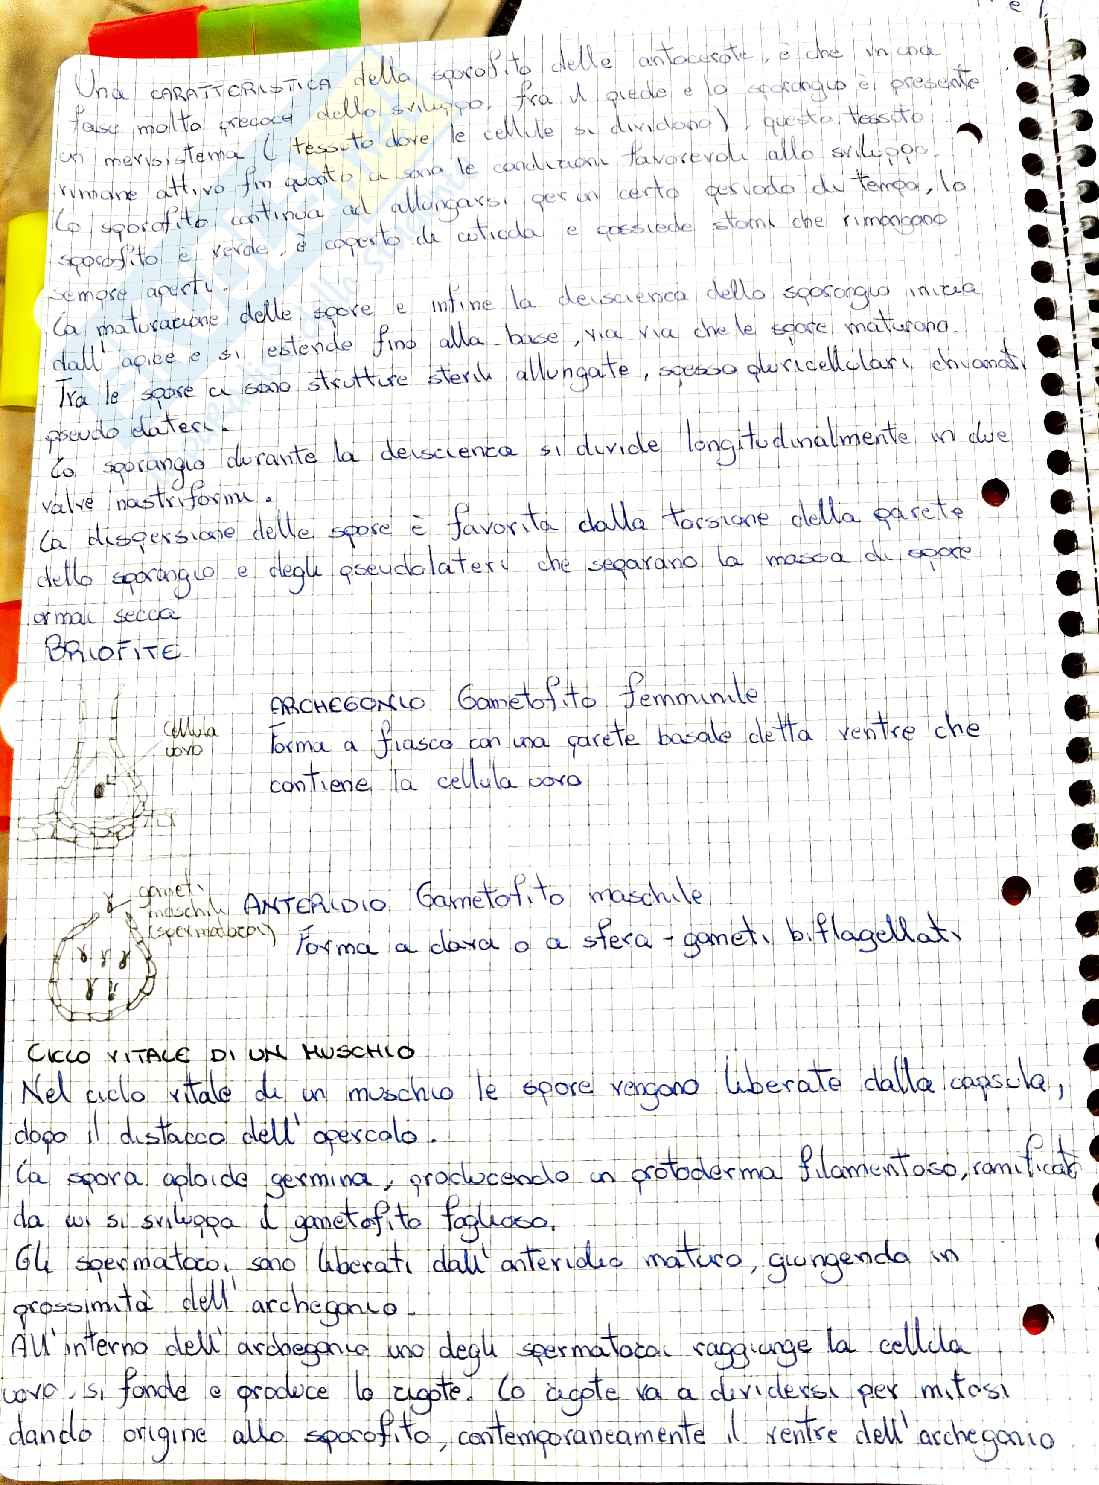 Una CARATTERISTICA della sporofito delle antocerote, è che in una
fase molto precoce dello sviluppo, fra il piede e lo sporangio è presente
un merisistema (tessuto dove le cellule si dividono), questo tessuto
rimane attivo fin quanto ci sono le condizioni favorevoli allo sviluppo.
Lo sporofito continua ad allungarsi per un certo periodo di tempo, lo
sporofito è verde, è coperto di cuticola e possiede stomi che rimangono
sempre aperti.
La maturazione delle spore e infine la deiscienza dello sporangio inizia
dall'apice e si estende fino alla base, via via che le spore maturano.
Tra le spore ci sono strutture sterili allungate, spesso pluricellulari, chiamati
pseudo elateri.
Lo sporangio durante la deiscienza si divide longitudinalmente in due
valve nastriformi.
La dispersione delle spore è favorita dalla torsione della parete
dello sporangio e degli pseudolateri che separano la massa di spore
ormai secca
BRIOFITE
ARCHEGONIO Gametofito femminile
cellula
uovo
Forma a fiasco con una parete basale detta ventre che
contiene la cellula uovo
gameti
maschili
(spermatozoi)
ANTERIDIO Gametofito maschile
Forma a clava o a sfera - gameti biflagellati
CICLO VITALE DI UN MUSCHIO
Nel ciclo vitale di un muschio le spore vengono liberate dalla capsula,
dopo il distacco dell'opercolo.
La spora aploide germina, producendo un protoderma filamentoso, ramificato
da cui si sviluppa il gametofito foglioso.
Gli spermatozoi sono liberati dall'anteridio maturo, giungendo in
prossimità dell'archegonio.
All'interno dell'archegonio uno degli spermatozoi raggiunge la cellula
uovo, si fonde e produce lo zigote. Lo zigote va a dividersi per mitosi
dando origine allo sporofito, contemporaneamente il ventre dell'archegonio